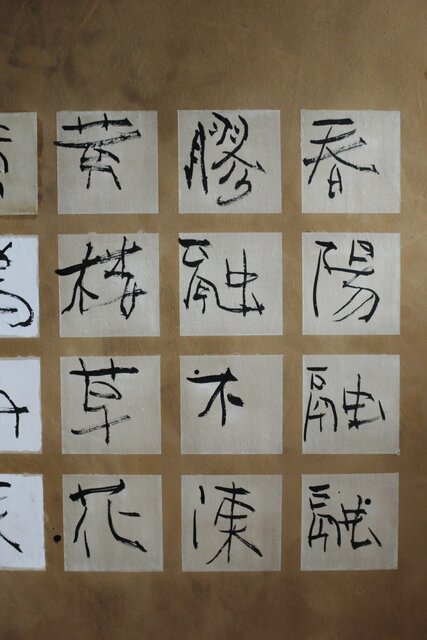 春陽融融
膠融不凍
黄楼草花